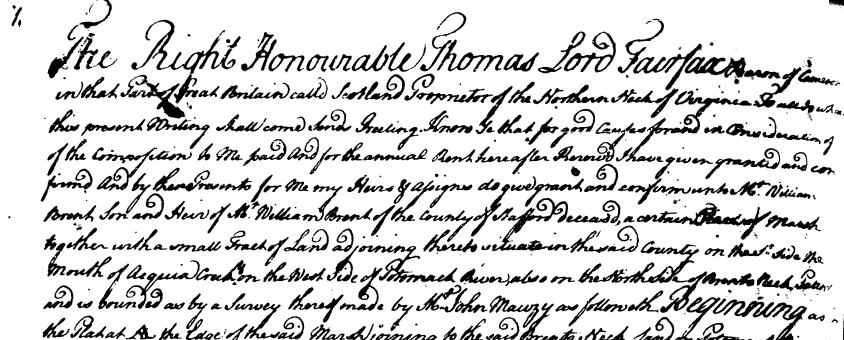 The Right Honourable Thomas Lord Fairfax Baron of Cameron
in that Part of Great Britain called Scotland Proprietor of the Northern Neck of Virginia To all to whom
this present Writing shall come Sends Greeting Know Ye that for good Causes for and in Consideration of
of the Composition to Me paid And for the annual Rent hereafter Reserved I have given granted and con
firmd And by these Presents for Me my Heirs & assignes do give grant and confirm unto Mr. William
Brent Son and Heir of Mr. William Brent of the County of Stafford deceasd, a certain of Marsh
together with a small Tract of Land adjoining thereto situate in the said County on the So. Side the
Mouth of Acquia Creek, on the West Side of Potomack River, also on the North Side of Brents Neck,
and is bounded as by a Survey thereof made by Mr. John Mauzy as followeth Beginning as
the Plat at A the Edge of the said Marsh joining to the said Brents Neck